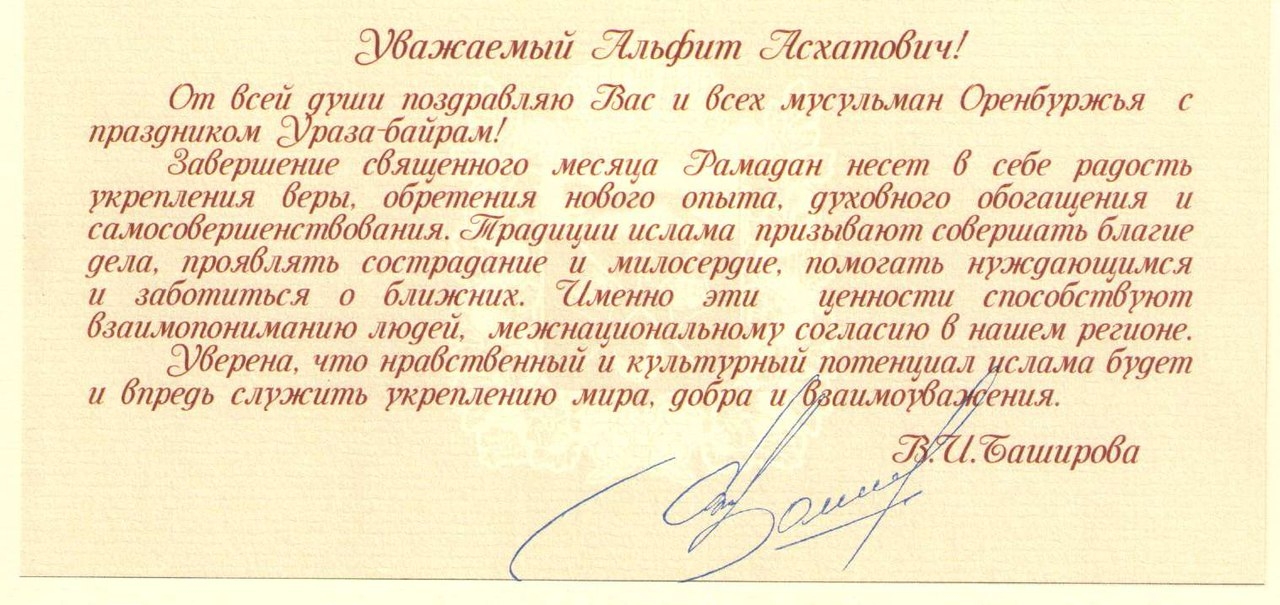 Уважаемый Альфит Асхатович!
От всей души поздравляю Вас и всех мусульман Оренбуржья с
праздником Ураза-байрам!
Завершение священного месяца Рамадан несет в себе радость
укрепления веры, обретения нового опыта, духовного обогащения и
самосовершенствования. Традиции ислама призывают совершать благие
дела, проявлять сострадание и милосердие, помогать нуждающимся
и заботиться о ближних. Именно эти ценности способствуют
взаимопониманию людей, межнациональному согласию в нашем регионе.
Уверена, что нравственный и культурный потенциал ислама будет
и впредь служить укреплению мира, добра и взаимоуважения.
В.И.Баширова